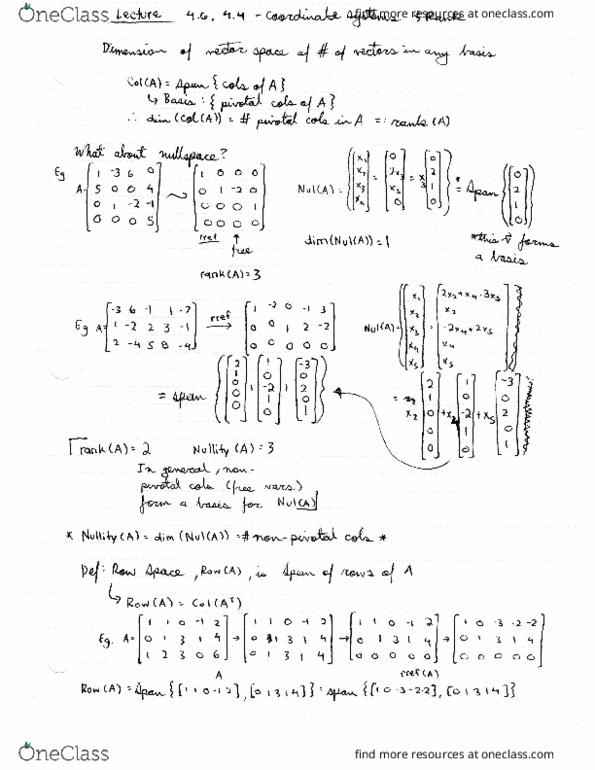 OneClass
find more resources at oneclass.com
Lecture 4.6, 4.4 - coordinate systems
Dimension of vector space # of vectors in any basis
Col(A) = Span { cols of A }
↳ Basis : { pivotal cols of A }
∴ dim (col(A)) = # pivotal cols in A =: rank (A)
What about nullspace?
Eg A = [1 -3 6 0; 5 0 0 4; 0 1 -2 -1; 0 0 0 5] ~ [1 0 0 0; 0 1 -2 0; 0 0 0 1; 0 0 0 0]
rref ↑ free
Nul(A) = { [x1 x2 x3 x4] = [0 2x3 x3 0] = x3 [0 2 1 0] } = Span { [0 2 1 0] }
dim(Nul(A)) = 1
*this forms a basis
rank(A) = 3
Eg A = [-3 6 -1 1 -7; 1 -2 2 3 -1; 2 -4 5 8 -4] rref → [1 -2 0 -1 3; 0 0 1 2 -2; 0 0 0 0 0]
Nul(A) = { [x1 x2 x3 x4 x5] = [2x2+x4-3x5 x2 -2x4+2x5 x4 x5]
= x2 [2 1 0 0 0] + [1 0 -2 1 0] + x5 [-3 0 2 0 1] }
= span { [2 1 0 0 0], [1 0 -2 1 0], [-3 0 2 0 1] }
rank(A) = 2 Nullity (A) = 3
In general, non-
pivotal cols (free vars.)
form a basis for Nul(A)
* Nullity(A) = dim (Nul(A)) = # non-pivotal cols *
Def: Row Space, Row(A), is Span of rows of A
↳ Row(A) = Col(Aᵀ)
Eg. A = [1 1 0 -1 2; 0 1 3 1 4; 1 2 3 0 6] → [1 1 0 -1 2; 0 1 3 1 4; 0 1 3 1 4] → [1 1 0 -1 2; 0 1 3 1 4; 0 0 0 0 0] → [1 0 -3 -2 -2; 0 1 3 1 4; 0 0 0 0 0]
A rref(A)
Row(A) = Span {[1 1 0 -1 2], [0 1 3 1 4]} = span {[1 0 -3 -2 2], [0 1 3 1 4]}
OneClass
find more resources at oneclass.com